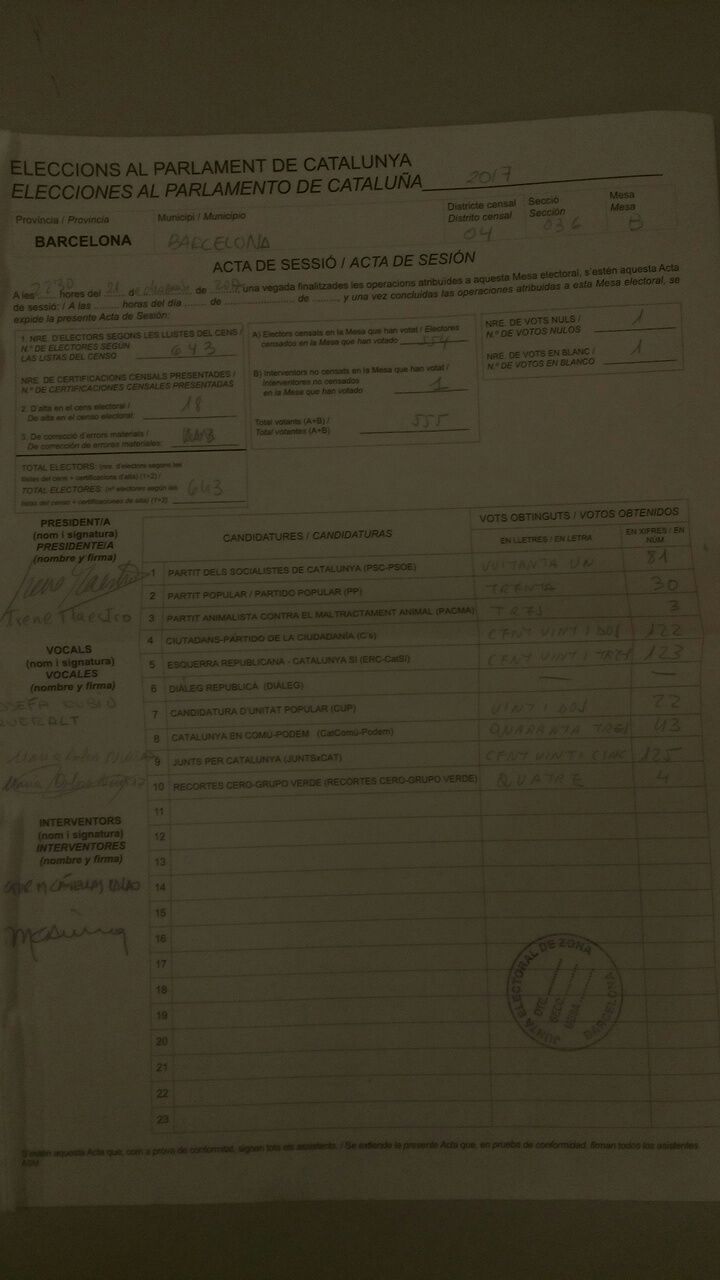 ELECCIONS AL PARLAMENT DE CATALUNYA
ELECCIONES AL PARLAMENTO DE CATALUÑA 2017
Província / Provincia
Municipi / Municipio
Districte censal
Distrito censal
Secció
Sección
Mesa
Mesa
BARCELONA BARCELONA 04 036 B
ACTA DE SESSIÓ / ACTA DE SESIÓN
A les 2230 hores del 21 de de una vegada finalitzades les operacions atribuïdes a aquesta Mesa electoral, s'estén aquesta Acta
de sessió: / A las ........ horas del día ........ de ........ de ........ y una vez concluidas las operaciones atribuidas a esta Mesa electoral, se
expide la presente Acta de Sesión:
1. NRE. D'ELECTORS SEGONS LES LLISTES DEL CENS /
N.º DE ELECTORES SEGÚN
LAS LISTAS DEL CENSO 643
NRE. DE CERTIFICACIONS CENSALS PRESENTADES /
N.º DE CERTIFICACIONES CENSALES PRESENTADAS
2. D'alta en el cens electoral /
De alta en el censo electoral: 18
3. De correcció d'errors materials /
De corrección de errores materiales:
TOTAL ELECTORS: (nre. d'electors segons les
llistes del cens + certificacions d'alta) (1+2) /
TOTAL ELECTORES: (nº electores según las
listas del censo + certificaciones de alta) (1+2) 643
A) Electors censats en la Mesa que han votat / Electores
censados en la Mesa que han votado 554
B) Interventors no censats en la Mesa que han votat /
Interventores no censados
en la Mesa que han votado 1
Total votants (A+B) /
Total votantes (A+B) 555
NRE. DE VOTS NULS /
N.º DE VOTOS NULOS 1
NRE. DE VOTS EN BLANC /
N.º DE VOTOS EN BLANCO 1
PRESIDENT/A
(nom i signatura)
PRESIDENTE/A
(nombre y firma)
Irene Maestro
Irene Maestro
VOCALS
(nom i signatura)
VOCALES
(nombre y firma)
RUBIO
QUERALT
INTERVENTORS
(nom i signatura)
INTERVENTORES
(nombre y firma)
CANDIDATURES / CANDIDATURAS
VOTS OBTINGUTS / VOTOS OBTENIDOS
EN LLETRES / EN LETRA
EN XIFRES / EN NÚM
1 PARTIT DELS SOCIALISTES DE CATALUNYA (PSC-PSOE) VUITANTA UN 81
2 PARTIT POPULAR / PARTIDO POPULAR (PP) TRENTA 30
3 PARTIT ANIMALISTA CONTRA EL MALTRACTAMENT ANIMAL (PACMA) TRES 3
4 CIUTADANS-PARTIDO DE LA CIUDADANÍA (C's) CENT VINT I DOS 122
5 ESQUERRA REPUBLICANA - CATALUNYA SÍ (ERC-CatSí) CENT VINT I TRES 123
6 DIÀLEG REPUBLICÀ (DIÀLEG) — —
7 CANDIDATURA D'UNITAT POPULAR (CUP) VINT I DOS 22
8 CATALUNYA EN COMÚ-PODEM (CatComú-Podem) QUARANTA TRES 43
9 JUNTS PER CATALUNYA (JUNTSxCAT) CENT VINT I CINC 125
10 RECORTES CERO-GRUPO VERDE (RECORTES CERO-GRUPO VERDE) QUATRE 4
11
12
13
14
15
16
17
18
19
20
21
22
23
JUNTA ELECTORAL DE ZONA
DTE.
SECC.
MESA
BARCELONA
S'estén aquesta Acta que, com a prova de conformitat, signen tots els assistents. / Se extiende la presente Acta que, en prueba de conformidad, firman todos los asistentes.